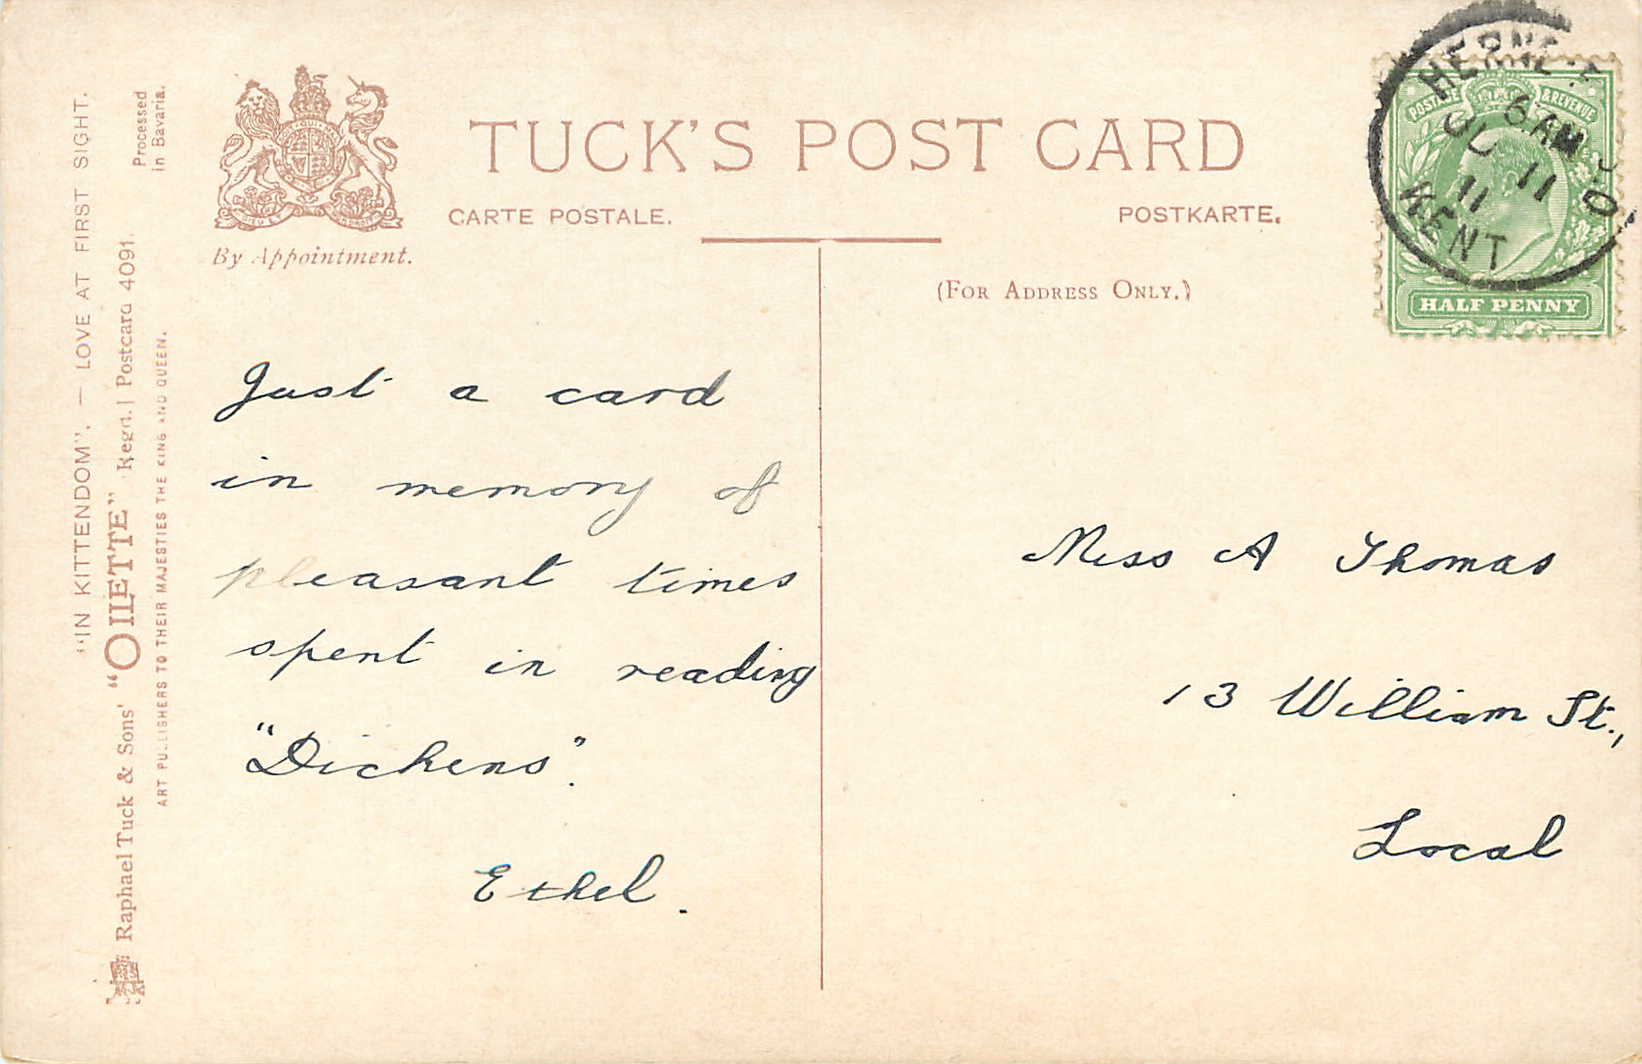 "IN KITTENDOM". — LOVE AT FIRST SIGHT.
Raphael Tuck & Sons' "OILETTE" Regd. Postcard 4091.
ART PUBLISHERS TO THEIR MAJESTIES THE KING AND QUEEN.
Processed
in Bavaria.
By Appointment.
TUCK'S POST CARD
CARTE POSTALE.
POSTKARTE.
(For Address Only.)
POSTAGE & REVENUE
HALF PENNY
HERNE
6 AM
11
11
KENT
Just a card
in memory of
pleasant times
spent in reading
"Dickens".
Ethel.
Miss A Thomas
13 William St.,
Local